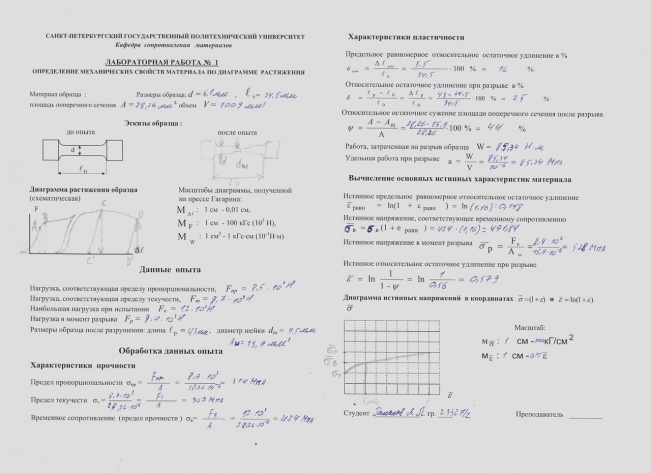 САНКТ-ПЕТЕРБУРГСКИЙ ГОСУДАРСТВЕННЫЙ ПОЛИТЕХНИЧЕСКИЙ УНИВЕРСИТЕТ
Кафедра сопротивления материалов
ЛАБОРАТОРНАЯ РАБОТА № 1
ОПРЕДЕЛЕНИЕ МЕХАНИЧЕСКИХ СВОЙСТВ МАТЕРИАЛА ПО ДИАГРАММЕ РАСТЯЖЕНИЯ
Материал образца : Размеры образца: d = 6,1 мм , ℓ₀ = 34,5 мм
площадь поперечного сечения A = 28,26 мм² объем V = 1009 мм³
Эскизы образца :
до опыта после опыта
d
ℓ₀
Диаграмма растяжения образца
(схематическая)
F
Масштабы диаграммы, полученной
на прессе Гагарина:
M Δℓ : 1 см - 0,01 см,
M F : 1 см - 100 кГс (10³ Н),
M W : 1 см² - 1 кГс·см (10⁻¹Н·м)
Данные опыта
Нагрузка, соответствующая пределу пропорциональности, Fпр = 8,5 · 10³ Н
Нагрузка, соответствующая пределу текучести, Fт = 8,7 · 10³ Н
Наибольшая нагрузка при испытании Fв = 12 · 10³ Н
Нагрузка в момент разрыва Fр = 8,4 · 10³ Н
Размеры образца после разрушения: длина ℓр = 43 мм, диаметр шейки dш = 4,5 мм
Aш = 15,9 мм²
Обработка данных опыта
Характеристики прочности
Предел пропорциональности σпр = Fпр / A =
Предел текучести σт = Fт / A = 307 МПа
Временное сопротивление (предел прочности ) σв = Fв / A = 12·10³ / 28,26·10⁻⁶ = 424 МПа
Характеристики пластичности
Предельное равномерное относительное остаточное удлинение в %
= 5,5 / 34,5 · 100 % = 16 %
Относительное остаточное удлинение при разрыве в %
δ = ℓр - ℓ₀ / ℓ₀ = Δℓ / ℓ₀ = 43 - 34,5 / 34,5 · 100 % = 25 %
Относительное остаточное сужение площади поперечного сечения после разрыва
ψ = A - Aш / A = 28,26 - 15,9 / 28,26 100 % = 44 %
Работа, затраченная на разрыв образца W = 85,34 Н м
Удельная работа при разрыве a = W / V = = 85,34 МПа
Вычисление основных истинных характеристик материала
Истинное предельное равномерное остаточное удлинение
ε равн = ln(1 + ε равн ) = ln (1,16) = 0,148
Истинное напряжение, соответствующее временному сопротивлению
σв = σв (1 + ε равн ) = 424 · (1,16) = 491,84
Истинное напряжение в момент разрыва σр = Fр / Aш = 8,4 · 10³ / 15,9 · 10⁻⁶ = 528 МПа
Истинное относительное остаточное удлинение при разрыве
ε = ln 1 / 1 - ψ = ln 1 / 0,56 = 0,579
Диаграмма истинных напряжений в координатах σ = (1+ε) и ε = ln(1+ε)
σ
ε
Масштаб:
mσ : 1 см - кГ/см²
mε : 1 см -
Студент гр. Преподаватель